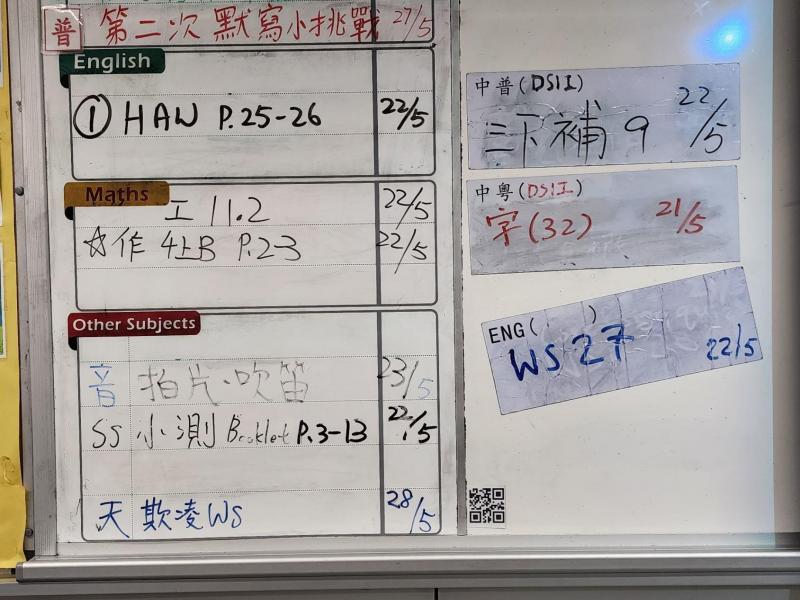 普 第二次 默寫小挑戰 27/5
English
① HAW P.25-26 22/5
Maths
工 11.2 22/5
☆作 4上B P.2-3 22/5
Other Subjects
音 拍片、吹笛 23/5
SS 小測 Booklet P.3-13 22/5
天 欺凌WS 28/5
中普(DSII)
三下補 9 22/5
中粵(DSII)
字(32) 21/5
ENG( )
WS 27 22/5